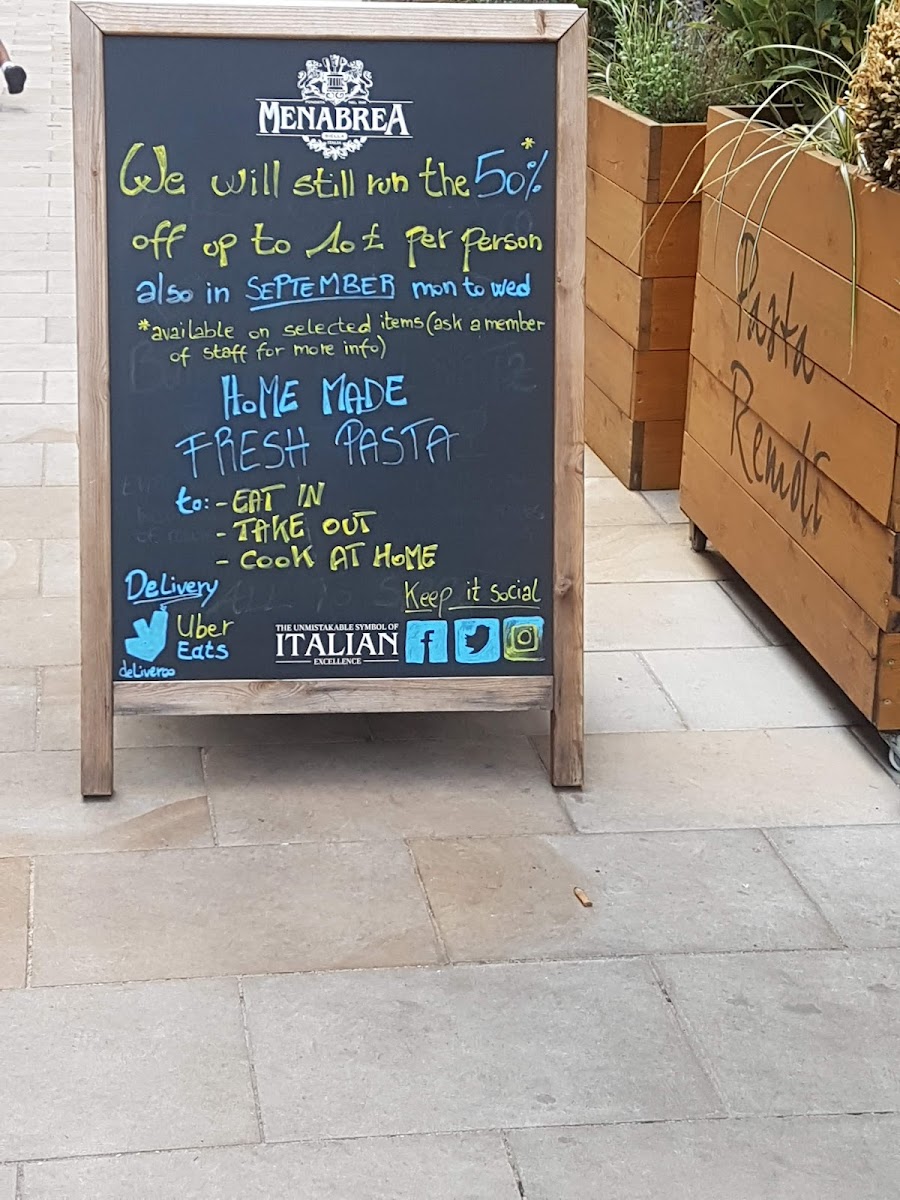 MENABREA
BIELLA
ITALIA
We will still run the 50%*
off up to 10£ per person
also in SEPTEMBER mon to wed
*available on selected items (ask a member
of staff for more info)
HOME MADE
FRESH PASTA
to: - EAT IN
- TAKE OUT
- COOK AT HOME
Delivery
Uber
Eats
deliveroo
Keep it social
THE UNMISTAKABLE SYMBOL OF
ITALIAN
EXCELLENCE
f
Pasta
Remoli